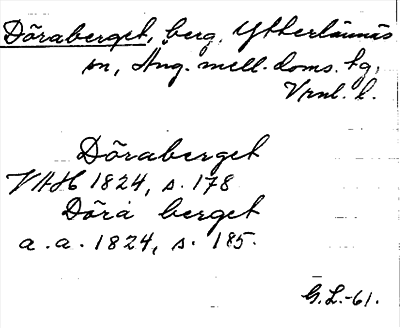 Döraberget, berg, Ytterlännäs
sn, Ång. mell. doms. tg,
Vrnl. l.
Döraberget
VAH 1824, s. 178
Döra berget
a. a. 1824, s. 185.
G.L.-61.